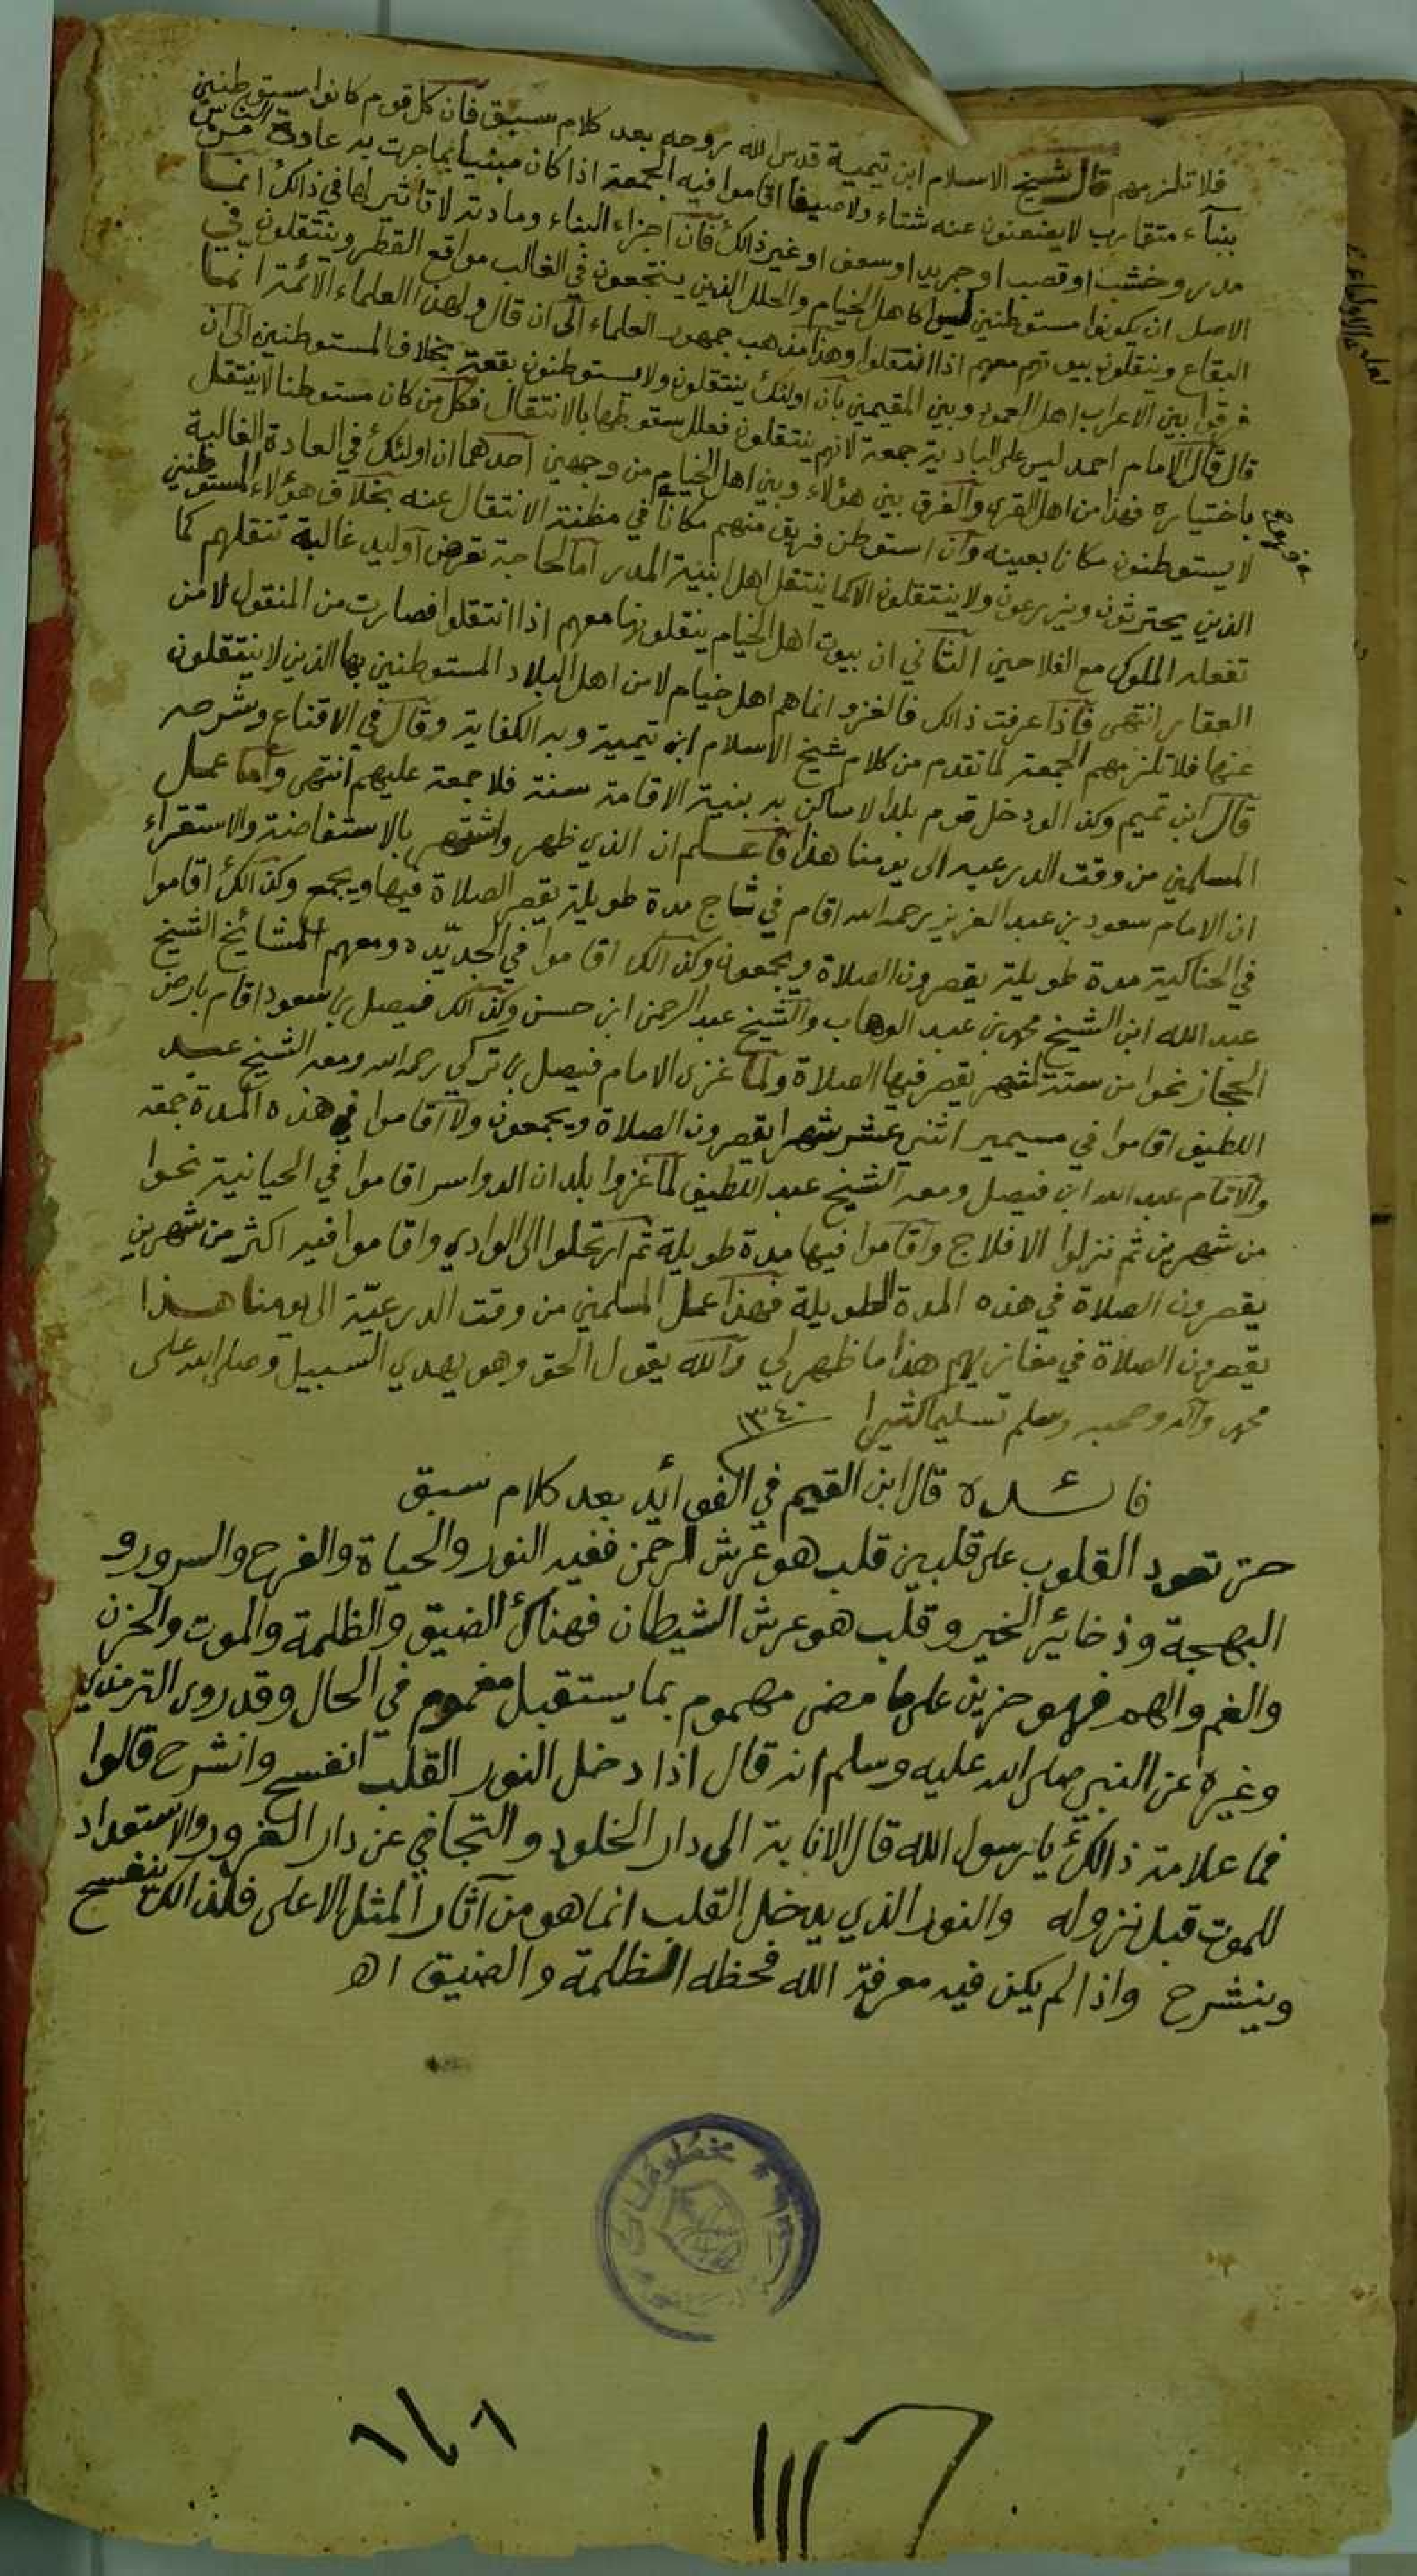 فلا تلزمهم قال شيخ الاسلام ابن تيمية قدس الله روحه بعد كلام سبق فان كل قوم كانوا مستوطنين
ببناء متقارب لا يضعنون عنه شتاء ولا صيفا اقاموا فيه الجمعة اذا كان مبنيا بما جرت به عادة الناس من
مدر وخشب او قصب او جريد او سعف او غير ذالك فان اجزاء البناء ومادته لا تاثير لها في ذالك انما
الاصل ان يكونوا مستوطنين ليسوا كاهل الخيام والحلل الذين ينتجعون في الغالب مواقع القطر وينتقلون في
البقاع وينقلون بيوتهم معهم اذا انتقلوا وهذا مذهب جمهور العلماء الى ان قال ولهذا العلماء الائمة انما
فرقوا بين الاعراب اهل العمود وبين المقيمين بان اولئك ينتقلون ولا يستوطنون بقعة بخلاف المستوطنين الى ان
قال قال الامام احمد ليس على البادية جمعة لانهم ينتقلون فعلل سقوطها بالانتقال فكل من كان مستوطنا لا ينتقل
باختياره فهذا من اهل القرى والفرق بين هؤلاء وبين اهل الخيام من وجهين احدهما ان اولئك في العادة الغالبة
لا يستوطنون مكانا بعينه وان استوطن فريق منهم مكانا في مظنة الانتقال عنه بخلاف هؤلاء المستوطنين
الذين يحترثون ويزرعون ولا ينتقلون الا كما ينتقل اهل ابنية المدر اما لحاجة تعرض او ليد غالبة تنقلهم كما
تفعله الملوك مع الفلاحين الثاني ان بيوت اهل الخيام ينقلونها معهم اذا انتقلوا فصارت من المنقول لا من
العقار انتهى فاذا عرفت ذالك فالغزو انما هم اهل خيام لا من اهل البلاد المستوطنين بها الذين لا ينتقلون
عنها فلا تلزمهم الجمعة لما تقدم من كلام شيخ الاسلام ابن تيمية وبه الكفاية وقال في الاقناع وشرحه
قال ابن تميم وكذا لو دخل قوم بلدا لا ساكن به بنية الاقامة سنة فلا جمعة عليهم انتهى واما عمل
المسلمين من وقت الدرعيه الى يومنا هذا فاعلم ان الذي ظهر واشتهر بالاستفاضة والاستقراء
ان الامام سعود بن عبد العزيز رحمه الله اقام في شاج مدة طويلة يقصر الصلاة فيها ويجمع وكذالك اقاموا
في الحناكية مدة طويلة يقصرون الصلاة ويجمعون وكذالك اقاموا في الجديده ومعهم المشائخ الشيخ
عبد الله ابن الشيخ محمد بن عبد الوهاب والشيخ عبد الرحمن ابن حسن وكذالك فيصل بن سعود اقام بارض
الحجاز نحوا من ستة اشهر يقصر فيها الصلاة ولما غزى الامام فيصل بن تركي رحمه الله ومعه الشيخ عبد
اللطيف اقاموا في مسيمير اثني عشر شهرا يقصرون الصلاة ويجمعون ولا اقاموا في هذه المدة جمعة
والامام عبد الله ابن فيصل ومعه الشيخ عبد اللطيف لما غزوا بلدان الدواسر اقاموا في الحيانية نحوا
من شهرين ثم نزلوا الافلاج واقاموا فيها مدة طويلة ثم ارتحلوا الى الوادي واقاموا فيه اكثر من شهرين
يقصرون الصلاة في هذه المدة الطويلة فهذا عمل المسلمين من وقت الدرعيّة الى يومنا هذا
يقصرون الصلاة في مغازيهم هذا ما ظهر لي والله يقول الحق وهو يهدي السبيل وصلى الله على
محمد واله وصحبه وسلم تسليما كثيرا ١٣٤٠
فائدة قال ابن القيم في الفوائد بعد كلام سبق
حتى تعود القلوب على قلبين قلب هو عرش الرحمن ففيه النور والحياة والفرح والسرور و
البهجة وذخائر الخير وقلب هو عرش الشيطان فهناك الضيق والظلمة والموت والحزن
والغم والهم فهو حزين على ما مضى مهموم بما يستقبل مغموم في الحال وقد روى الترمذي
وغيره عن النبي صلى الله عليه وسلم انه قال اذا دخل النور القلب انفسح وانشرح قالوا
فما علامة ذالك يا رسول الله قال الانابة الى دار الخلود والتجافي عن دار الغرور والاستعداد
للموت قبل نزوله والنور الذي يدخل القلب انما هو من آثار المثل الاعلى فلذالك ينفسح
وينشرح واذا لم يكن فيه معرفة الله فحظه الظلمة والضيق اهـ